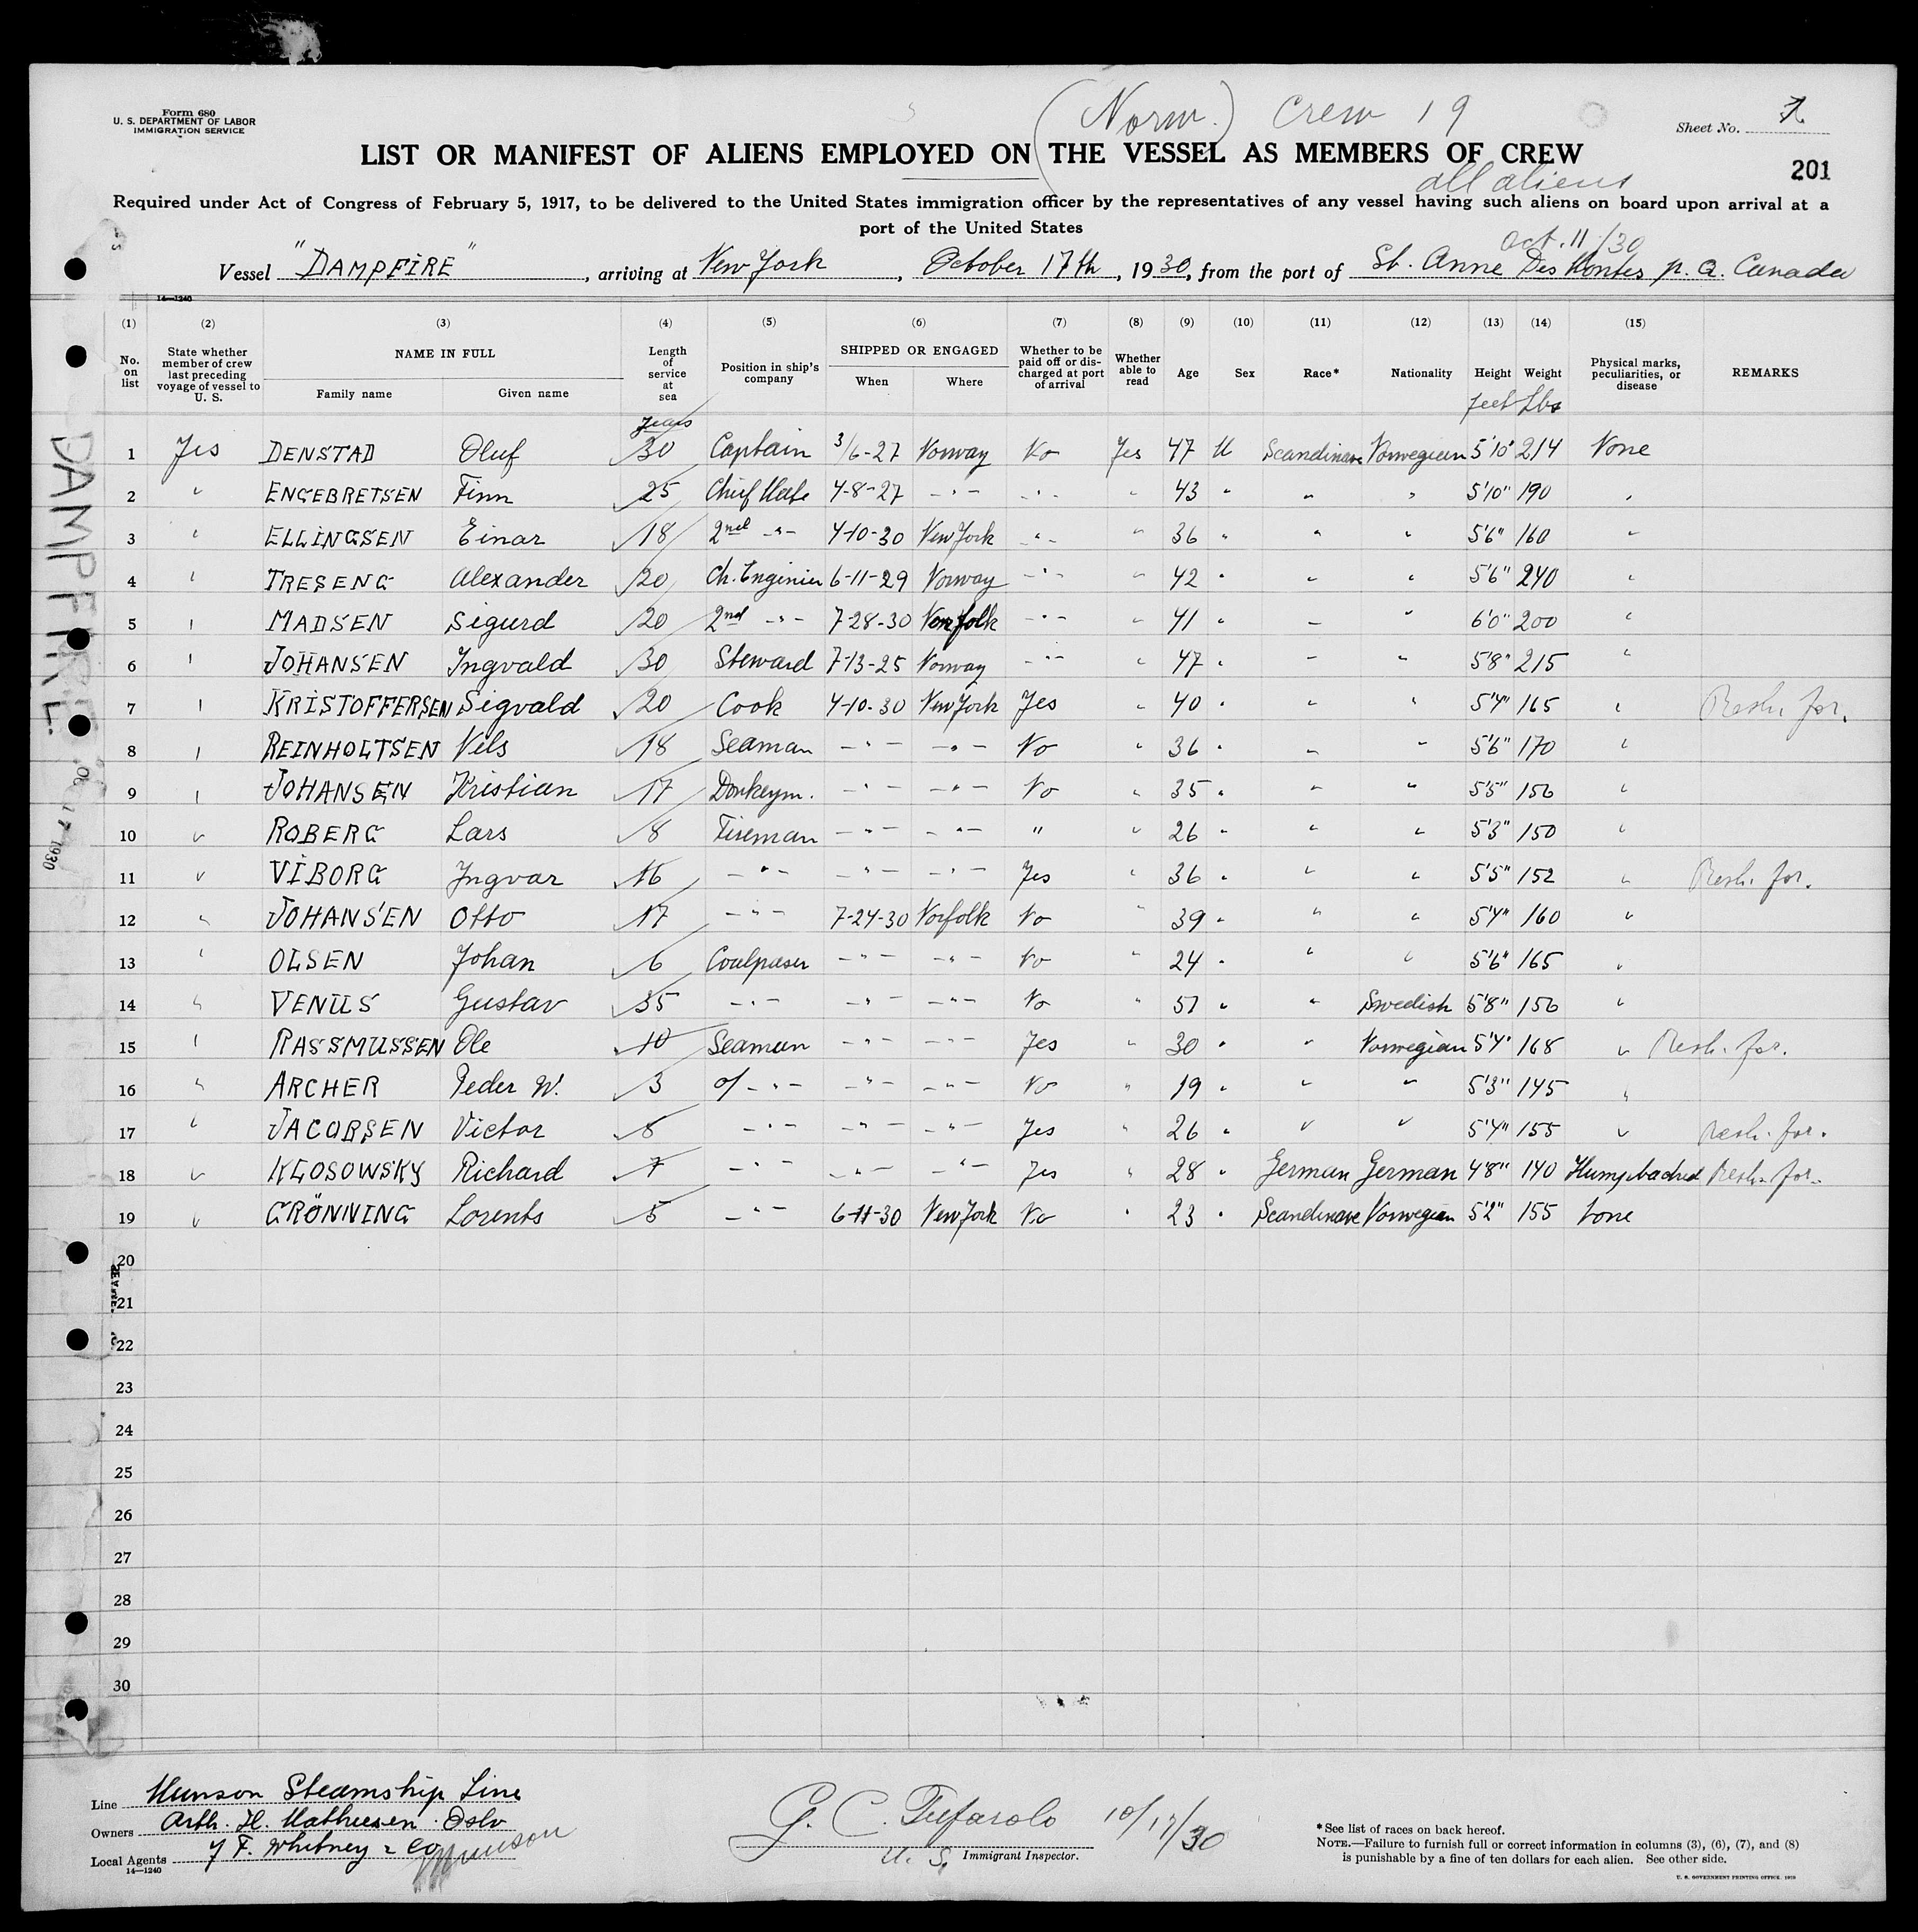 Form 680
U. S. DEPARTMENT OF LABOR
IMMIGRATION SERVICE
(Norw.) Crew 19
Sheet No.
LIST OR MANIFEST OF ALIENS EMPLOYED ON THE VESSEL AS MEMBERS OF CREW
all aliens
201
Required under Act of Congress of February 5, 1917, to be delivered to the United States immigration officer by the representatives of any vessel having such aliens on board upon arrival at a
port of the United States
Oct. 11/30
Vessel "DAMPFIRE", arriving at New York, October 17th, 1930, from the port of St. Anne Des Montes p. Q. Canada
14—1240
(1) (2) (3) (4) (5) (6) (7) (8) (9) (10) (11) (12) (13) (14) (15)
No. on list State whether member of crew last preceding voyage of vessel to U. S. NAME IN FULL Family name Given name Length of service at sea Position in ship's company SHIPPED OR ENGAGED When Where Whether to be paid off or discharged at port of arrival Whether able to read Age Sex Race* Nationality Height Weight Physical marks, peculiarities, or disease REMARKS
years feet Lbs
1 Yes DENSTAD Oluf 30 Captain 3/6-27 Norway No Yes 47 M Scandinave Norwegian 5'10" 214 None
2 " ENGEBRETSEN Finn 25 Chief Mate 4-8-27 -"- -"- " 43 " " " 5'10" 190 "
3 " ELLINGSEN Einar 18 2nd -"- 4-10-30 New York -"- " 36 " " " 5'6" 160 "
4 " TRESENG Alexander 20 Ch. Enginier 6-11-29 Norway -"- " 42 " " " 5'6" 240 "
5 " MADSEN Sigurd 20 2nd -"- 7-28-30 Norfolk -"- " 41 " " " 6'0" 200 "
6 " JOHANSEN Ingvald 30 Steward 7-13-25 Norway -"- " 47 " " " 5'8" 215 "
7 " KRISTOFFERSEN Sigvald 20 Cook 4-10-30 New York Yes " 40 " " " 5'4" 165 " Resh. for.
8 " REINHOLTSEN Nils 18 Seaman -"- -"- No " 36 " " " 5'6" 170 "
9 " JOHANSEN Kristian 17 Donkeym. -"- -"- No " 35 " " " 5'5" 156 "
10 " ROBERG Lars 8 Fireman -"- -"- " " 26 " " " 5'3" 150 "
11 " VIBORG Ingvar 16 -"- -"- -"- Yes " 36 " " " 5'5" 152 " Resh. for.
12 " JOHANSEN Otto 17 -"- 7-24-30 Norfolk No " 39 " " " 5'4" 160 "
13 " OLSEN Johan 6 Coalpaser -"- -"- No " 24 " " " 5'6" 165 "
14 " VENUS Gustav 35 -"- -"- -"- No " 51 " " Swedish 5'8" 156 "
15 " RASSMUSSEN Ole 10 Seaman -"- -"- Yes " 30 " " Norwegian 5'4" 168 " Resh. for.
16 " ARCHER Peder W. 3 o/ -"- -"- -"- No " 19 " " " 5'3" 145 "
17 " JACOBSEN Victor 8 -"- -"- -"- Yes " 26 " " " 5'4" 155 " Resh. for.
18 " KLOSOWSKY Richard 7 -"- -"- -"- Yes " 28 " German German 4'8" 140 Humpbacked Resh. for.
19 " GRÖNNING Lorents 5 -"- 6-11-30 New York No " 23 " Scandinave Norwegian 5'2" 155 None
20
21
22
23
24
25
26
27
28
29
30
DAMPFIRE
17 1930
Line Munson Steamship Line
Owners Arth. H. Mathiesen Oslo
Local Agents J F. Whitney & Co
14—1240
G. C. Tufarolo 10/17/30
U. S. Immigrant Inspector.
*See list of races on back hereof.
NOTE.—Failure to furnish full or correct information in columns (3), (6), (7), and (8)
is punishable by a fine of ten dollars for each alien. See other side.
U. S. GOVERNMENT PRINTING OFFICE: 1929